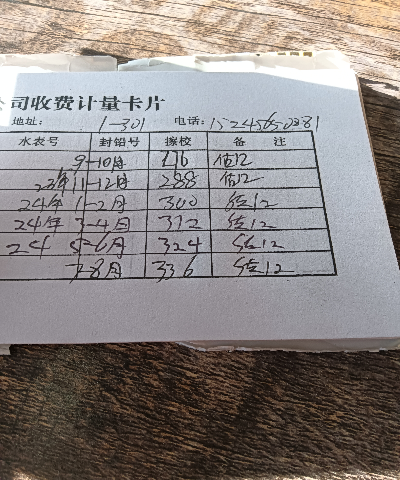 公司收费计量卡片
地址: 1-301 电话: 15245650281
水表号 封铅号 擦校 备 注
9-10月 276 估12
23年 11-12月 288 估12
24年 1-2月 300 估12
24年 3-4月 312 估12
24 5-6月 324 估12
7-8月 336 估12